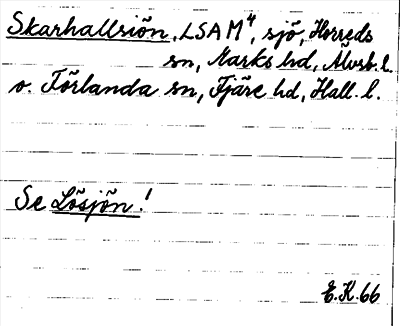 Skarhallsiön, LSA M⁴, sjö, Horreds
sn, Marks hd, Älvsb. l.
o. Förlanda sn, Fjäre hd, Hall. l.
Se Lösjön!
E.K. 66